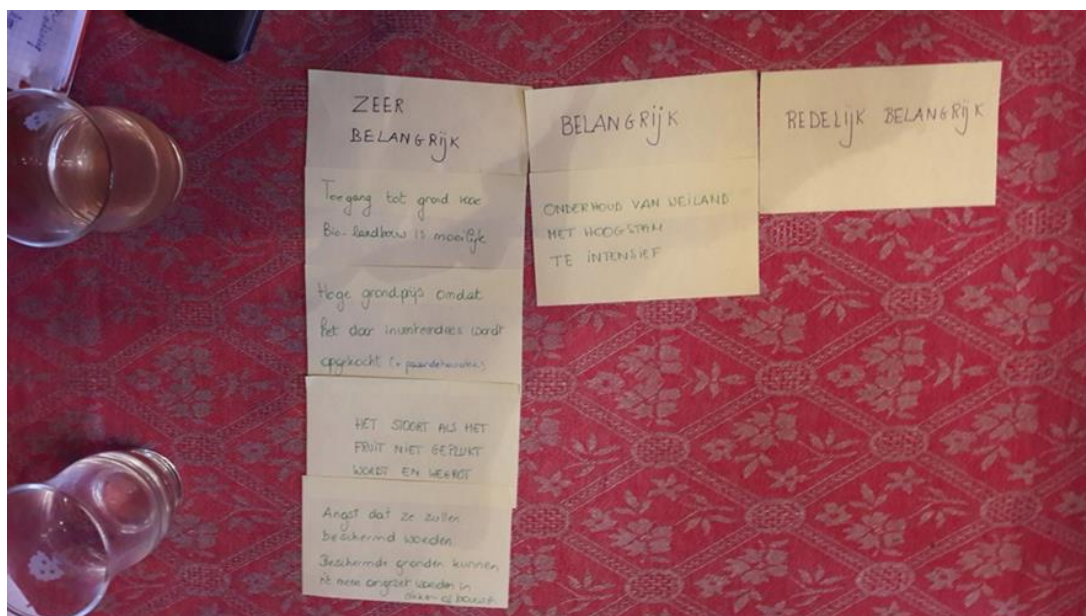 ZEER
BELANGRijK
Toegang tot grond voor
Bio-landbouw is moeilijk
Hoge grondprijs omdat
het door investeerders wordt
opgekocht (+ paardehouders)
HET STOORT ALS HET
FRUIT NIET GEPLUKT
WORDT EN WEGROT
Angst dat ze zullen
beschermd worden
Beschermde gronden kunnen
nt meer omgezet worden in
BELANGRijK
ONDERHOUD VAN WEILAND
MET HOOGSTAM
TE iNTENSiEF
REDELijK BELANGRijK